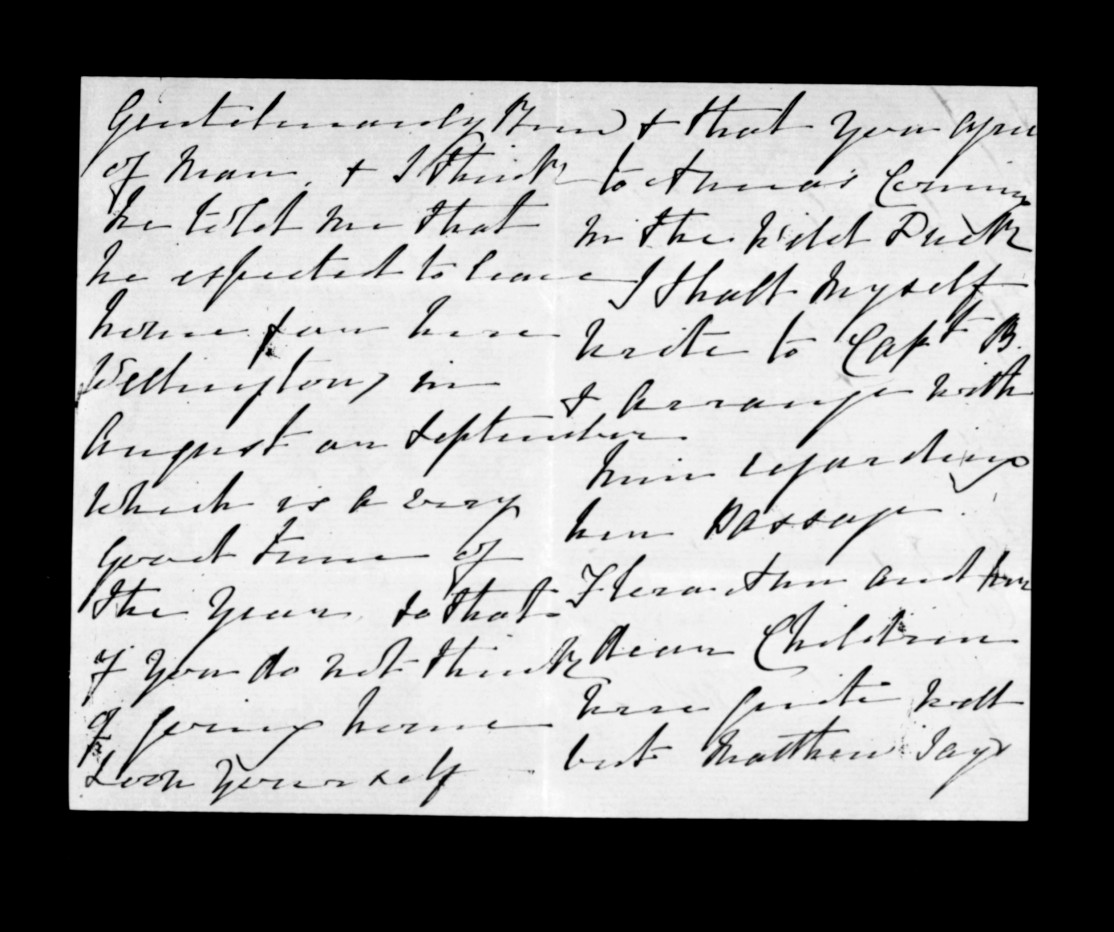 Gentlemanly Kind
of Man, & I think
he told me that
he expected to leave
home for here
Wellington, in
August or September
which is a very
good time of
the year, so that
if you do not think
of going home
soon yourself
& that you agree
to Anna's Coming
in the Wild Duck
I shall myself
write to Capt B.
& arrange with
him regarding
her passage.
Flora Ann and her
dear Children
were quite well
but Matthew says